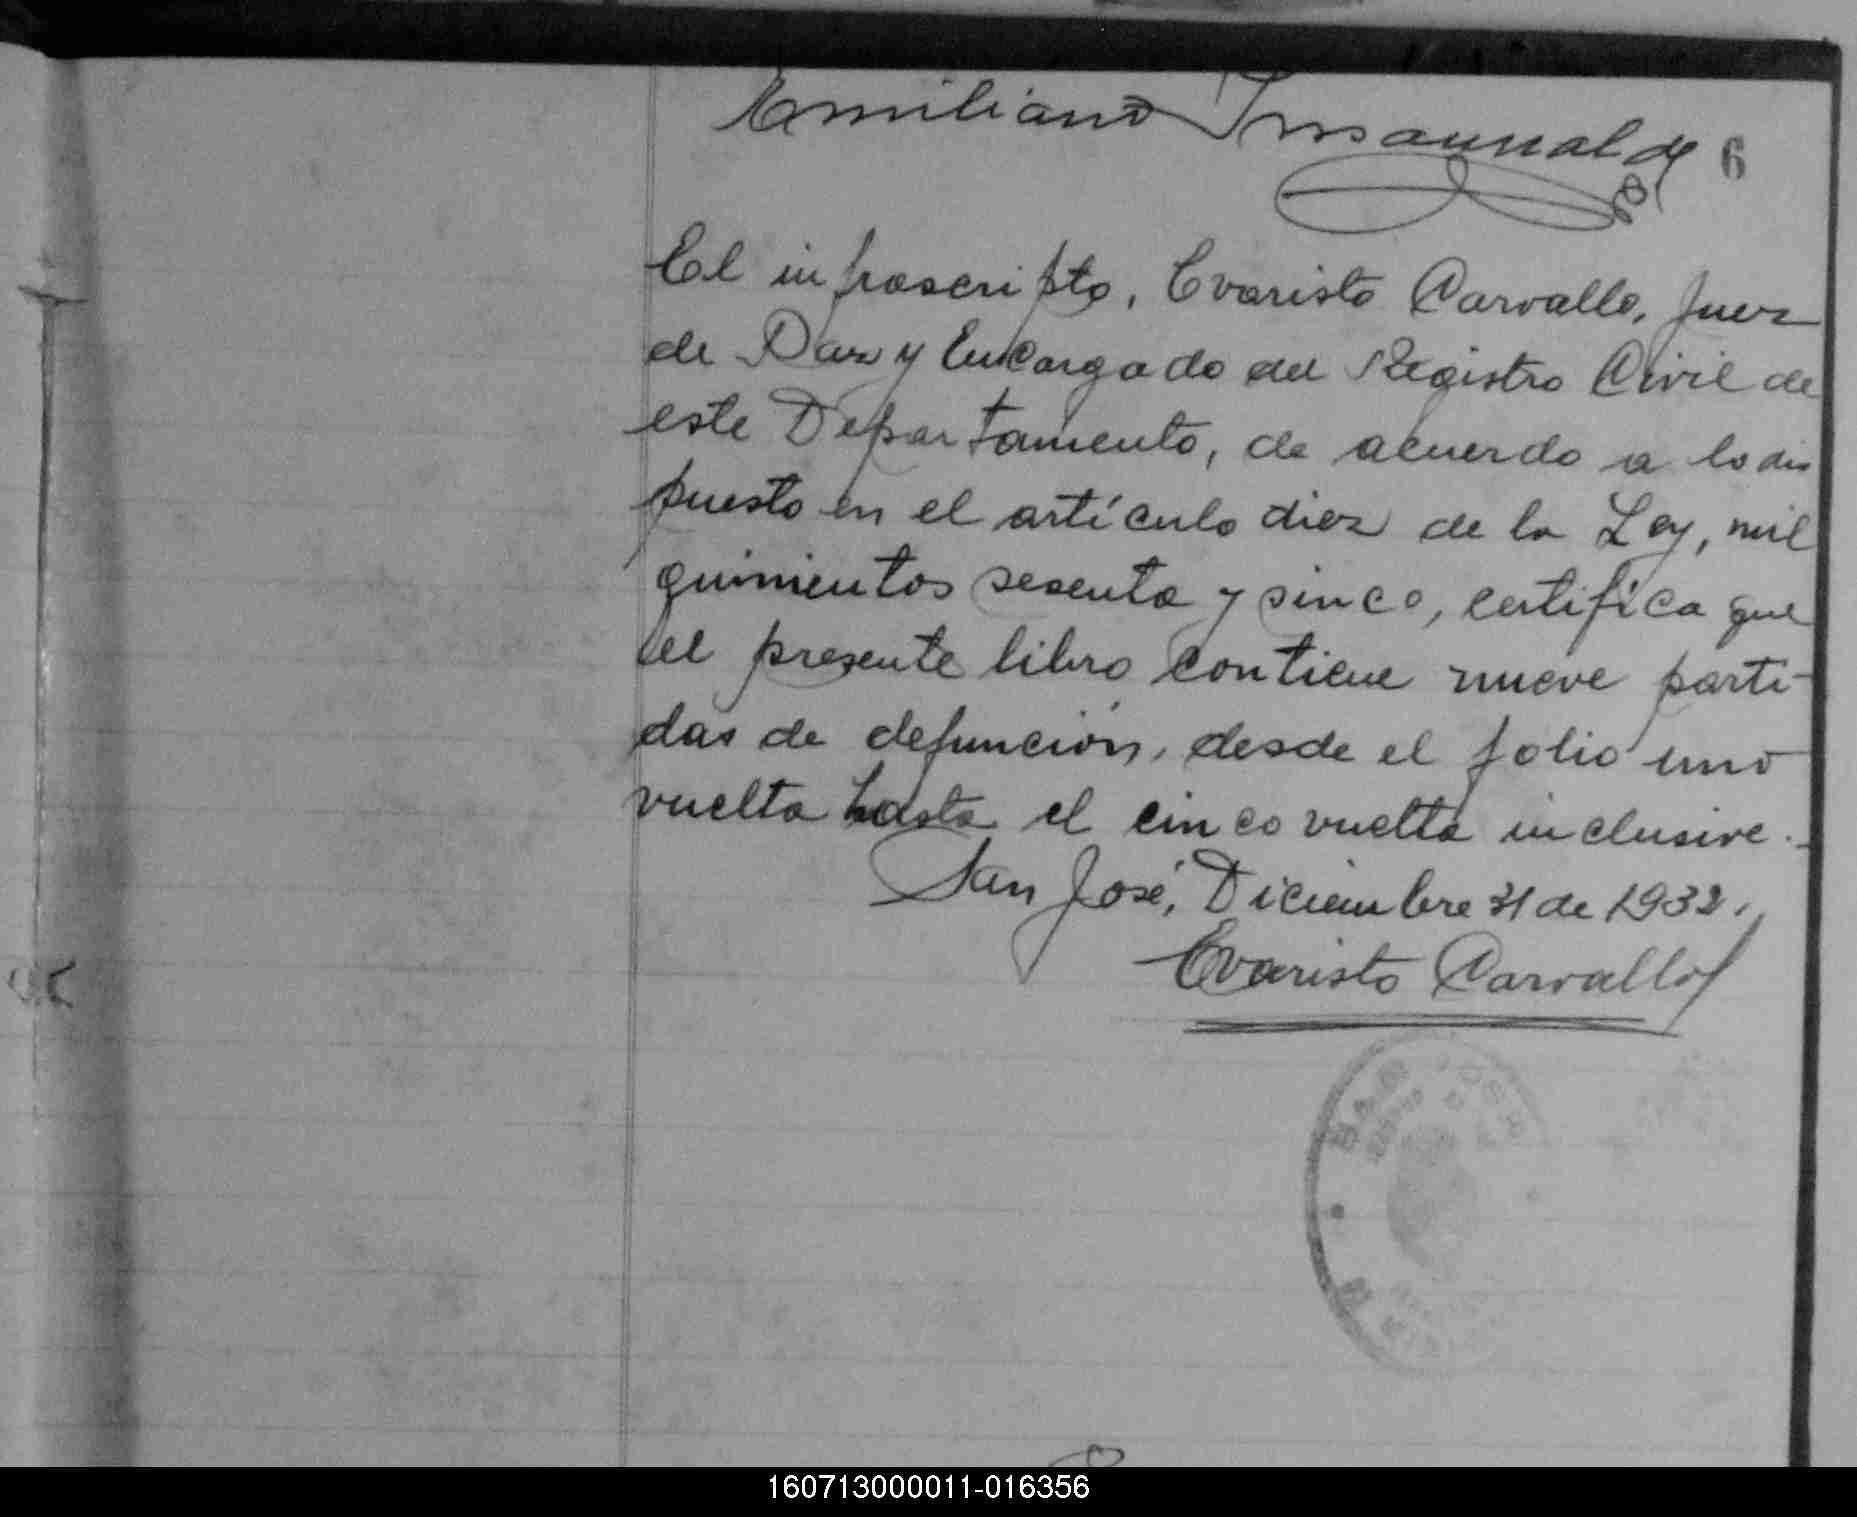 Emiliano Insaurralde
6
El infrascripto, Evaristo Carvallo, Juez
de Paz y Encargado del Registro Civil de
este Departamento, de acuerdo a lo dis
puesto en el artículo diez de la Ley, mil
quinientos sesenta y sinco, certifica que
el presente libro contiene nueve parti-
das de defunción, desde el folio uno
vuelta hasta el cinco vuelta inclusive.-
San José, Diciembre 31 de 1932.
Evaristo Carvallo
SAN JOSE
160713000011-016356